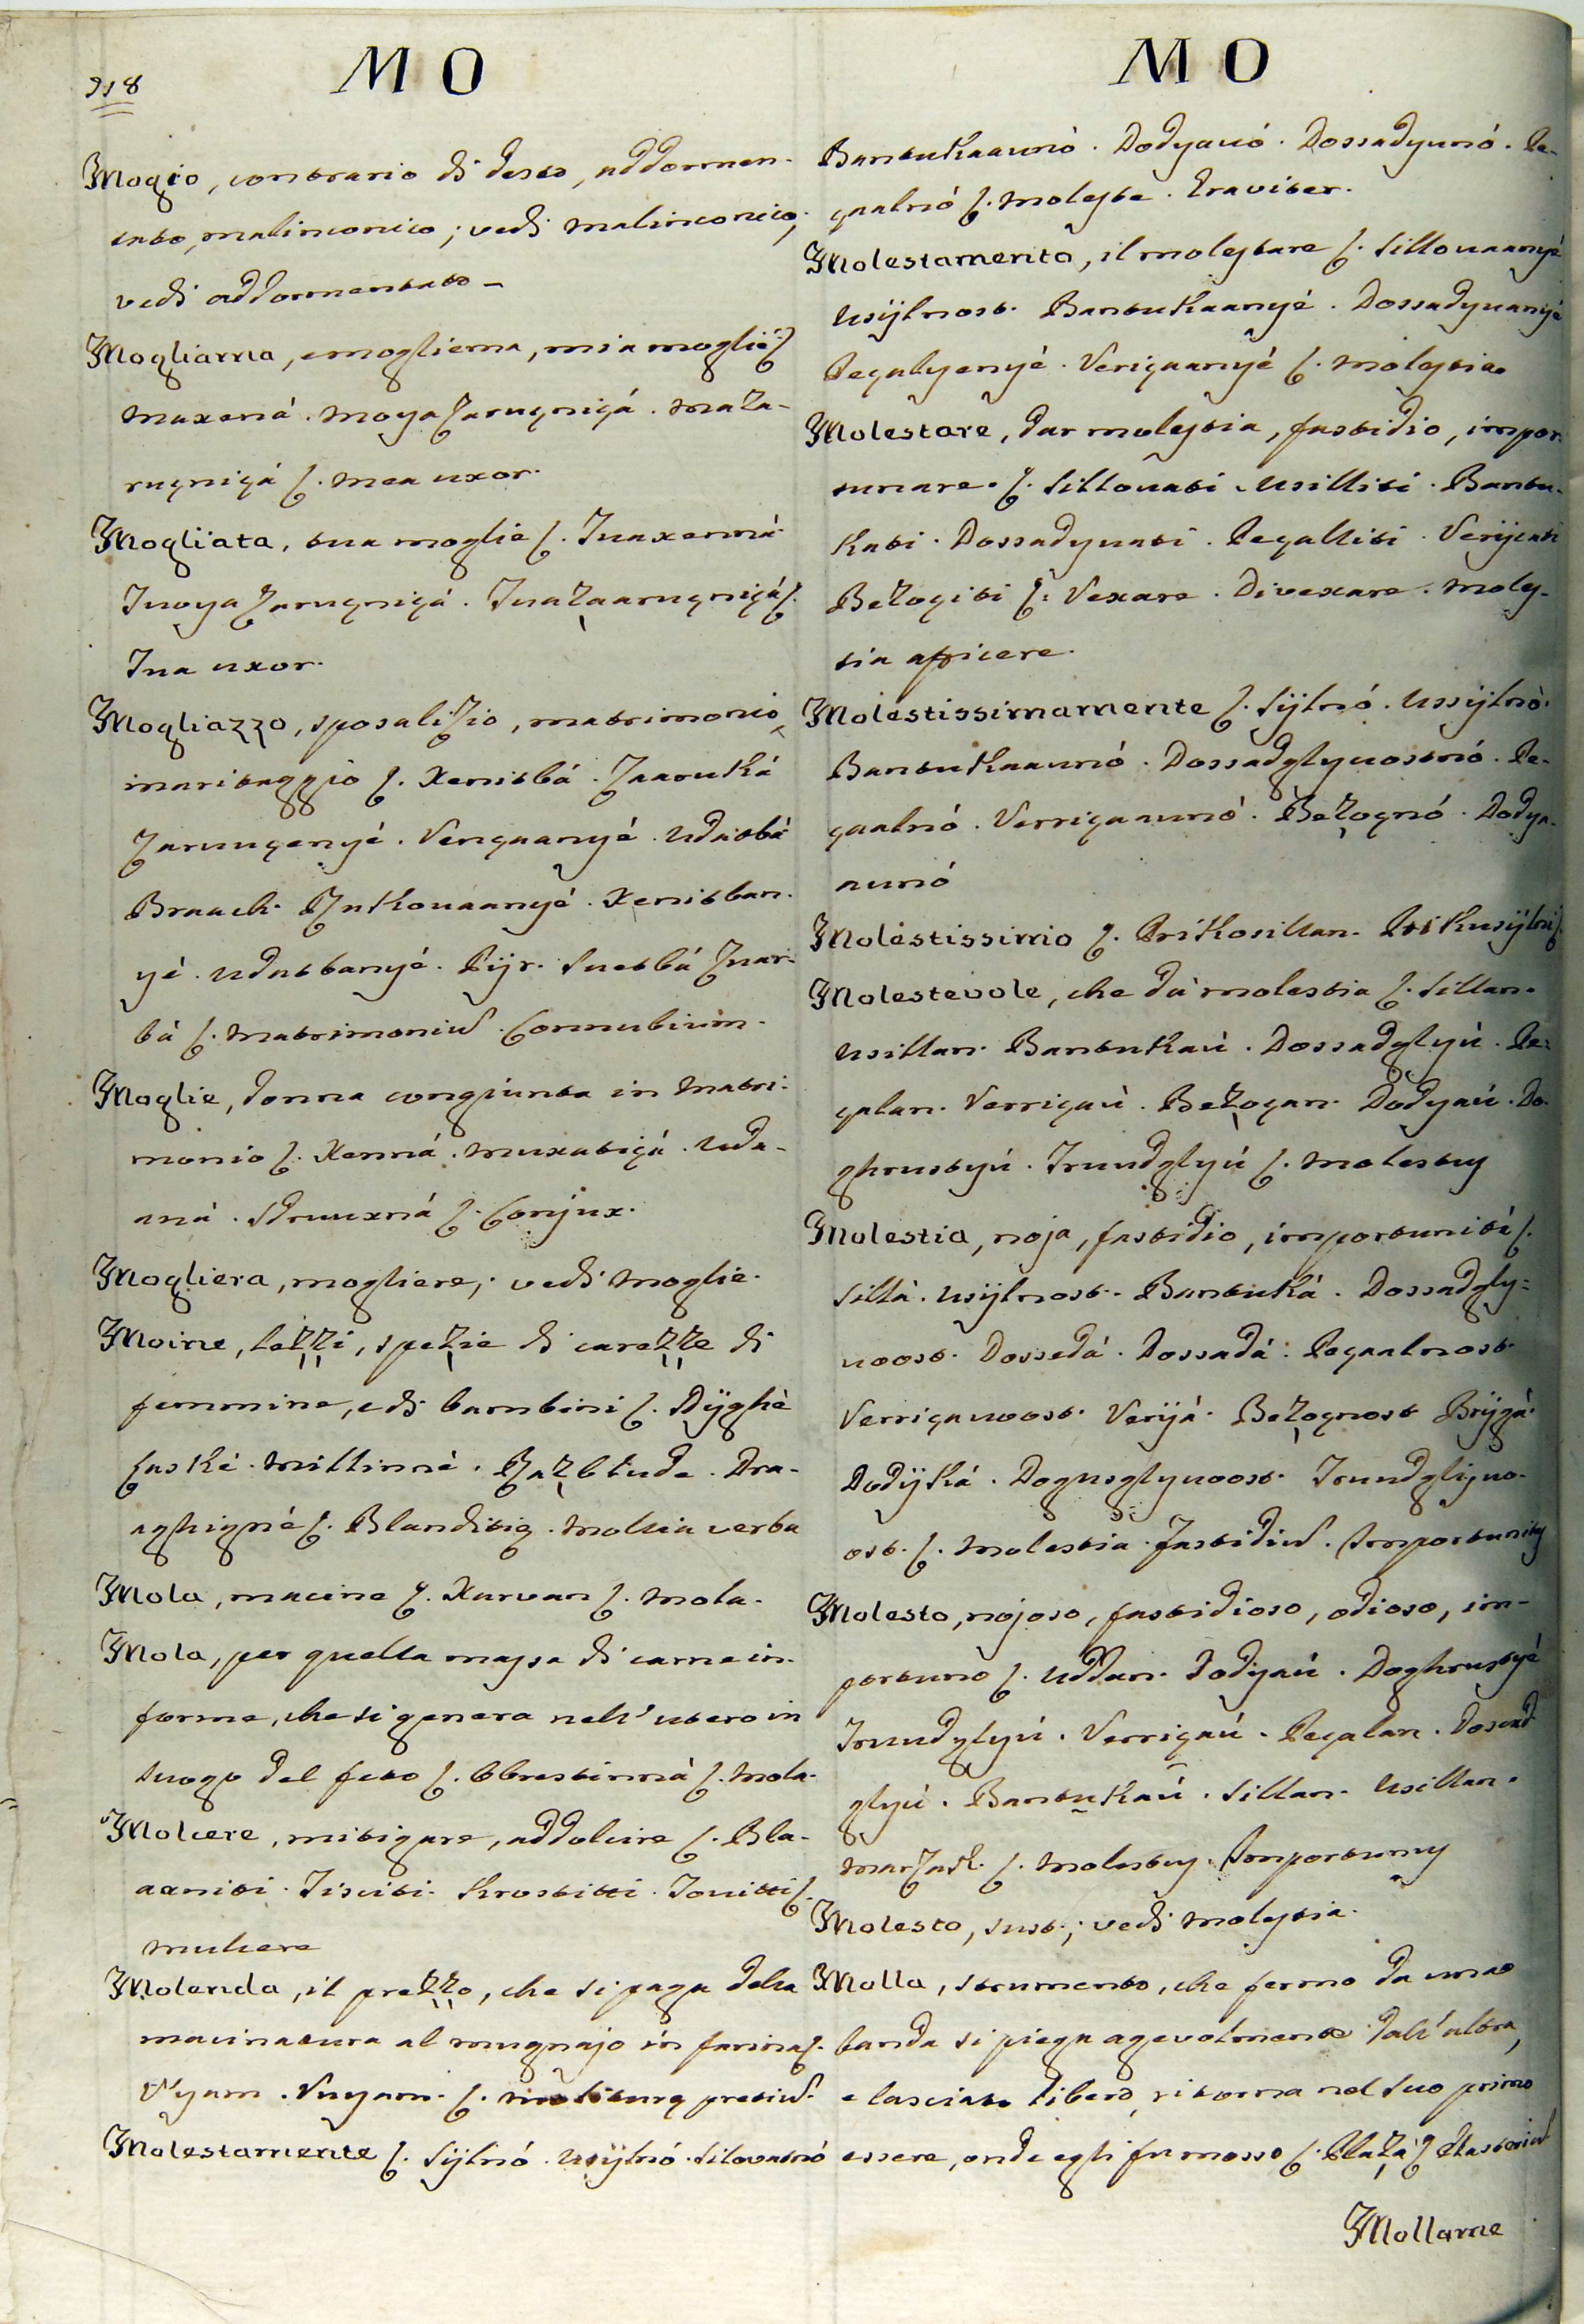 MO
MO
918
Mogio, contrario di desto, addormen-
tato, malinconico; vedi malinconico,
vedi addormentato-
Mogliama, emogliema, mia moglie ſ.
Muxená. Moya Zarugnigá. Maza-
rugnigá ſ. Mea uxor.
Mogliata, tua moglie ſ. Tuaxenná.
Tuoya Zarugnigá. Tuazaarugnigá ſ.
Tua uxor.
Mogliazzo, sposalizio, matrimonio,
maritaggio ſ. Xenitbá. Zaarukà
Zarungenyé. Vengaanyé. Udatbá
Braach. Rukovaanyé. Xenitban-
yé. Udatbanyé. Pijr. Suetbá Zuar-
bá ſ. Matrimoniu. Connubium.
Moglie, donna congiunta in Matri-
monio ſ. Xenná. Muxatigá. Uda-
aná. Sdruuxná ſ. Conjux.
Mogliera, mogliere; vedi Moglie.
Moine, lezzi, spezie di carezze di
femmine, e di bambini ſ. Dÿghè
Laskè. Millinnè. Razbluda. Dra-
aghignè ſ. Blanditię. Mollia verba
Mola, macine ſ. Xarvan ſ. Mola.
Mola, per quella massa di carne in-
forme, che si genera nell' utero in
luogo del feto ſ. Obrestinná ſ. Mola.
Molcere, mitigare, addolcire ſ. Bla-
axniti. Tisciti. Krostitti. Tovitti ſ.
Mulcere
Molenda, il prezzo, che si paga della
macinatura al mugnajo in farina ſ.
U'yam. Vuyam. ſ. Moliturę pretiu.
Molestamente ſ. Sÿlnó. Usÿlnó. Silovatnó
Bantukaaunó. Dodyauó. Dossadyunó. Pe-
gaalnó ſ. Moleste. Graviter.
Molestamento, il molestare ſ. Sillouaanyé
Usÿlnost. Bantukaanyé. Dossadyuanyé
Pegalyenyé. Verigaanyé ſ. Molestia.
Molestare, dar molestia, fastidio, impor-
tunare. ſ. Sillouati. Usilliti. Bantu-
kati. Dossadyuati. Pegalliti. Verijcati
Bezogiti ſ. Vexare. Divexare. Moles-
tia afficere.
Molestissimamente ſ. Sÿlnó. Ussÿlnò.
Bantukaaunó. Dossadglyuostnó. Pe-
gaalnó. Verrigaaunó. Bezognó. Dodya-
aunó
Molestissimo ſ. Prikosillan. Prikusÿlni ſ.
Molestevole, che dà molestia ſ. Sillan.
Usillan. Bantukaú. Dossadglyú. Pe-
galan. Verrigaú. Bezogan. Dodyaú. Do-
ghrustyú. Truudglyú ſ. Molestus
Molestia, noja, fastidio, importunità ſ.
Sillá. Usÿlnost. Bantuká. Dossadgly-
uoost. Dossedá. Dossadá. Pegaalnost
Verrigauoost. Verijá. Bezognost Brijgá.
Dodÿká. Dogusglyuoost. Truudglijuo-
ost. ſ. Molestia. Fastidiu. Importunitas
Molesto, nojoso, fastidioso, odioso, im-
portuno ſ. Uddan. Dodyaú. Doghrustyé
Truudglyú. Verrigaú. Pegalan. Dossad-
glyú. Bantukaú. Sillan. Usillan.
Marzask. ſ. Molestus. Importunus
Molesto, sust.; vedi Molestia.
Molla, strumento, che fermo da una
banda si piega agevolmente dall' altra,
e lasciato libero, ritorna nel suo primo
essere, onde egli fu mosso ſ. Plazá ſ. Elasteriu
Mollame